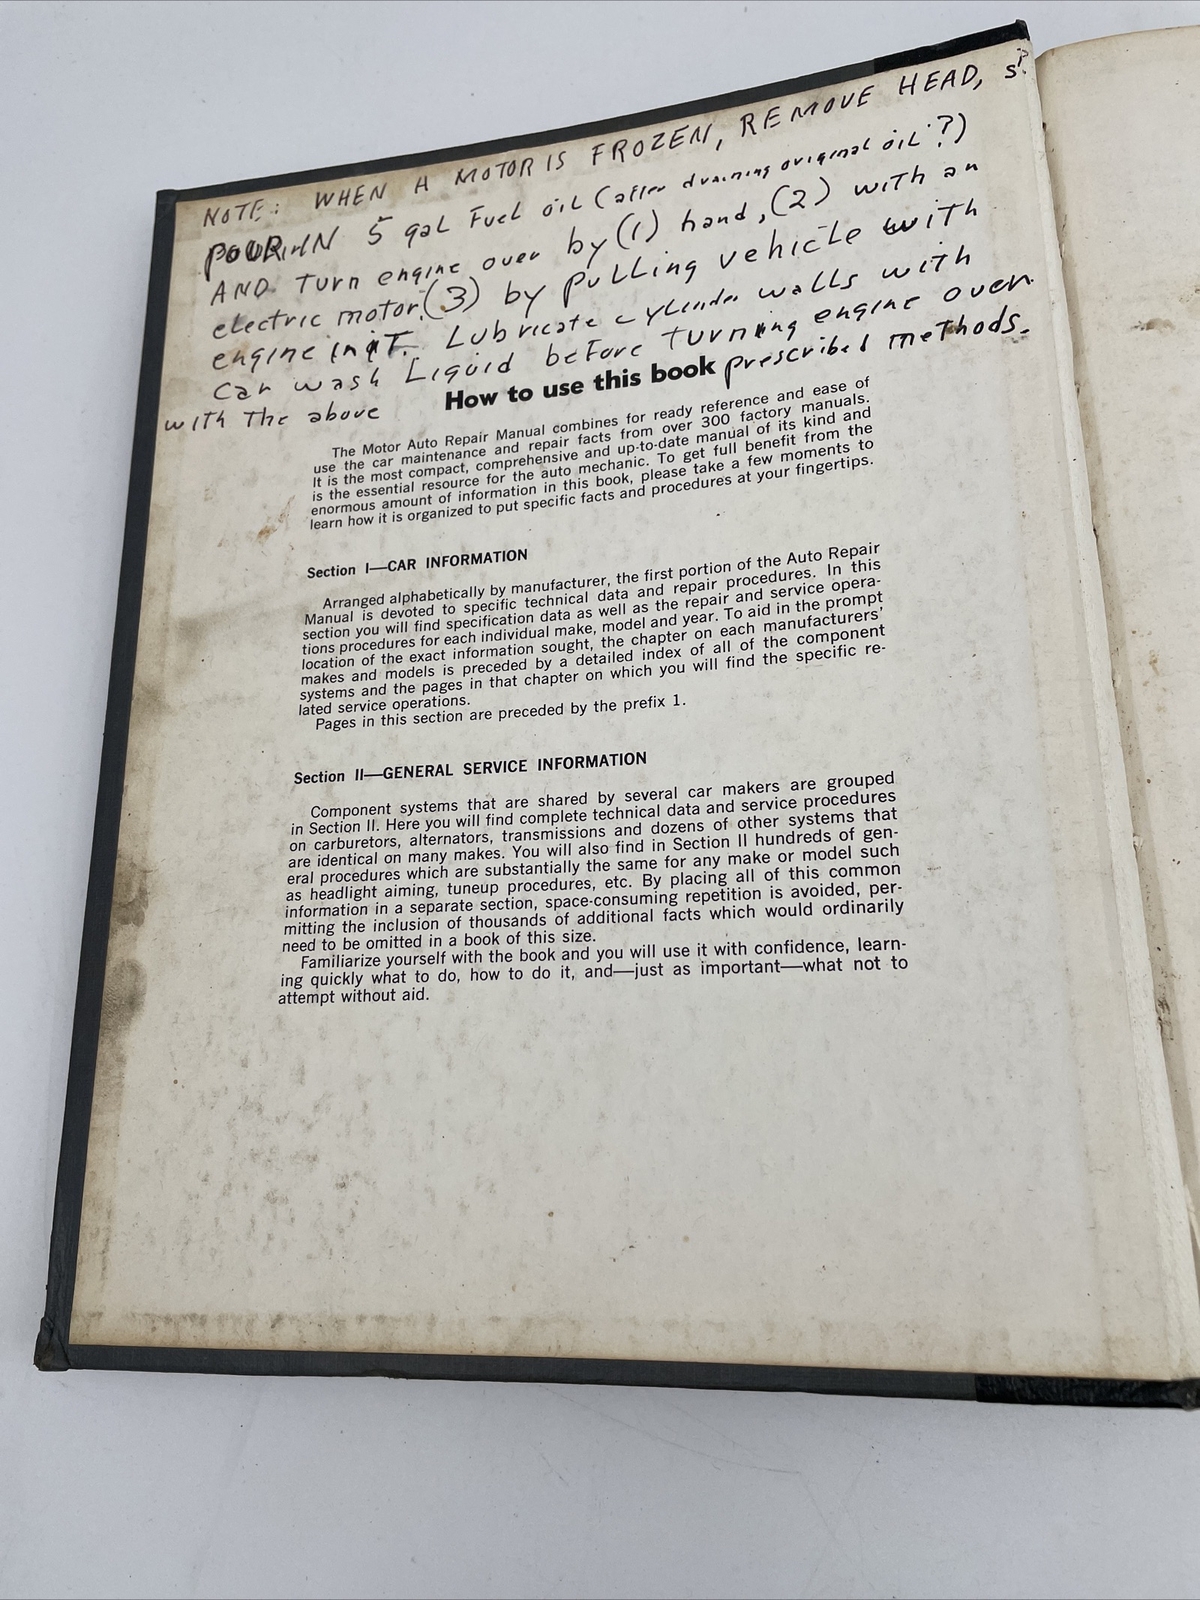 NOTE: WHEN A MOTOR IS FROZEN, REMOVE HEAD,
POUR IN 5 gal Fuel oil (after draining original oil?)
AND Turn engine over by (1) hand, (2) with an
electric motor. (3) by pulling vehicle with
engine in iT. Lubricate cylinder walls with
car wash Liquid before turning engine over
with The above prescribed methods.
How to use this book
The Motor Auto Repair Manual combines for ready reference and ease of
use the car maintenance and repair facts from over 300 factory manuals.
It is the most compact, comprehensive and up-to-date manual of its kind and
is the essential resource for the auto mechanic. To get full benefit from the
enormous amount of information in this book, please take a few moments to
learn how it is organized to put specific facts and procedures at your fingertips.
Section I—CAR INFORMATION
Arranged alphabetically by manufacturer, the first portion of the Auto Repair
Manual is devoted to specific technical data and repair procedures. In this
section you will find specification data as well as the repair and service opera-
tions procedures for each individual make, model and year. To aid in the prompt
location of the exact information sought, the chapter on each manufacturers'
makes and models is preceded by a detailed index of all of the component
systems and the pages in that chapter on which you will find the specific re-
lated service operations.
Pages in this section are preceded by the prefix 1.
Section II—GENERAL SERVICE INFORMATION
Component systems that are shared by several car makers are grouped
in Section II. Here you will find complete technical data and service procedures
on carburetors, alternators, transmissions and dozens of other systems that
are identical on many makes. You will also find in Section II hundreds of gen-
eral procedures which are substantially the same for any make or model such
as headlight aiming, tuneup procedures, etc. By placing all of this common
information in a separate section, space-consuming repetition is avoided, per-
mitting the inclusion of thousands of additional facts which would ordinarily
need to be omitted in a book of this size.
Familiarize yourself with the book and you will use it with confidence, learn-
ing quickly what to do, how to do it, and—just as important—what not to
attempt without aid.